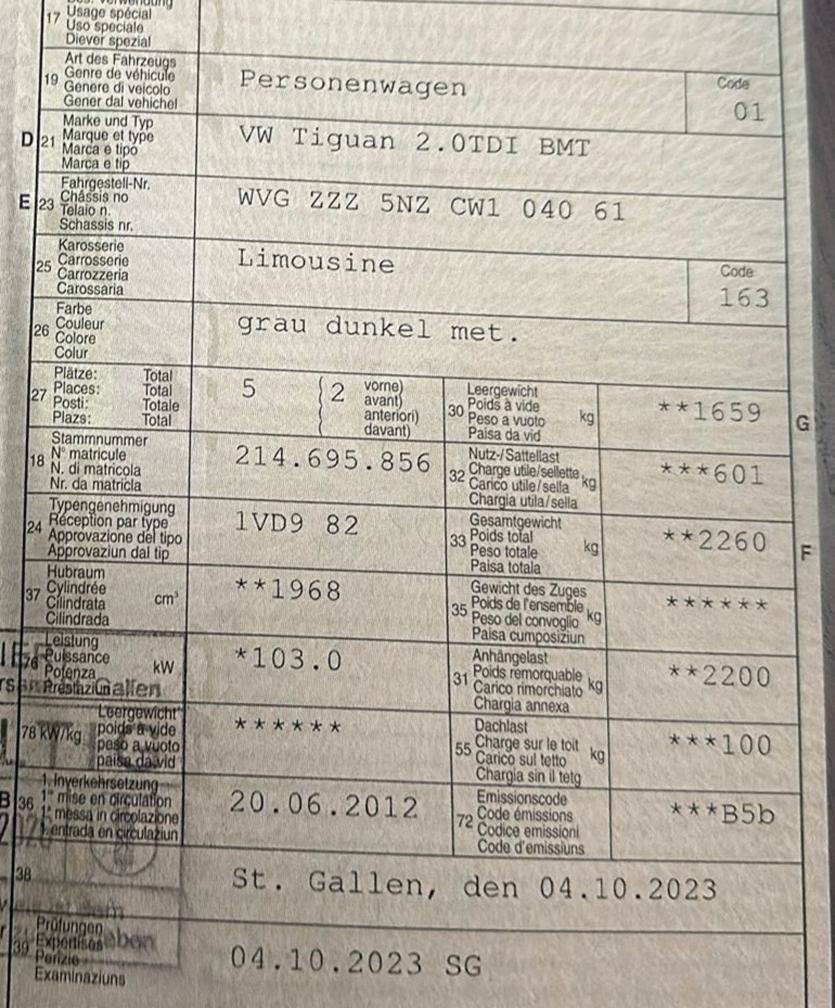 17 Usage spécial
Uso speciale
Diever spezial
Art des Fahrzeugs
19 Genre de véhicule
Genere di veicolo
Gener dal vehichel
Personenwagen
Code
01
Marke und Typ
D 21 Marque et type
Marca e tipo
Marca e tip
VW Tiguan 2.0TDI BMT
Fahrgestell-Nr.
E 23 Châssis no
Telaio n.
Schassis nr.
WVG ZZZ 5NZ CW1 040 61
Karosserie
25 Carrosserie
Carrozzeria
Carossaria
Limousine
Code
163
Farbe
26 Couleur
Colore
Colur
grau dunkel met.
Plätze: Total
27 Places: Total
Posti: Totale
Plazs: Total
5
2
vorne)
avant)
anteriori)
davant)
Leergewicht
30 Poids à vide kg
Peso a vuoto
Paisa da vid
**1659
G
Stammnummer
18 N° matricule
N. di matricola
Nr. da matricla
214.695.856
Nutz-/Sattellast
32 Charge utile/sellette
Carico utile/sella kg
Chargia utila/sella
***601
Typengenehmigung
24 Réception par type
Approvazione del tipo
Approvaziun dal tip
1VD9 82
Gesamtgewicht
33 Poids total kg
Peso totale
Paisa totala
**2260
F
Hubraum
37 Cylindrée cm³
Cilindrata
Cilindrada
**1968
Gewicht des Zuges
35 Poids de l'ensemble kg
Peso del convoglio
Paisa cumposiziun
******
Leistung
76 Puissance kW
Potenza
Prestaziun
Gallen
*103.0
Anhängelast
31 Poids remorquable kg
Carico rimorchiato
Chargia annexa
**2200
Leergewicht
78 kW/kg poids à vide
peso a vuoto
paisa da vid
******
Dachlast
55 Charge sur le toit kg
Carico sul tetto
Chargia sin il tetg
***100
1. Inverkehrsetzung
B 36 1re mise en circulation
1a messa in circolazione
1. entrada en circulaziun
20.06.2012
Emissionscode
72 Code émissions
Codice emissioni
Code d'emissiuns
***B5b
38
St. Gallen, den 04.10.2023
Prüfungen
39 Expertises
Perizie
Examinaziuns
04.10.2023 SG